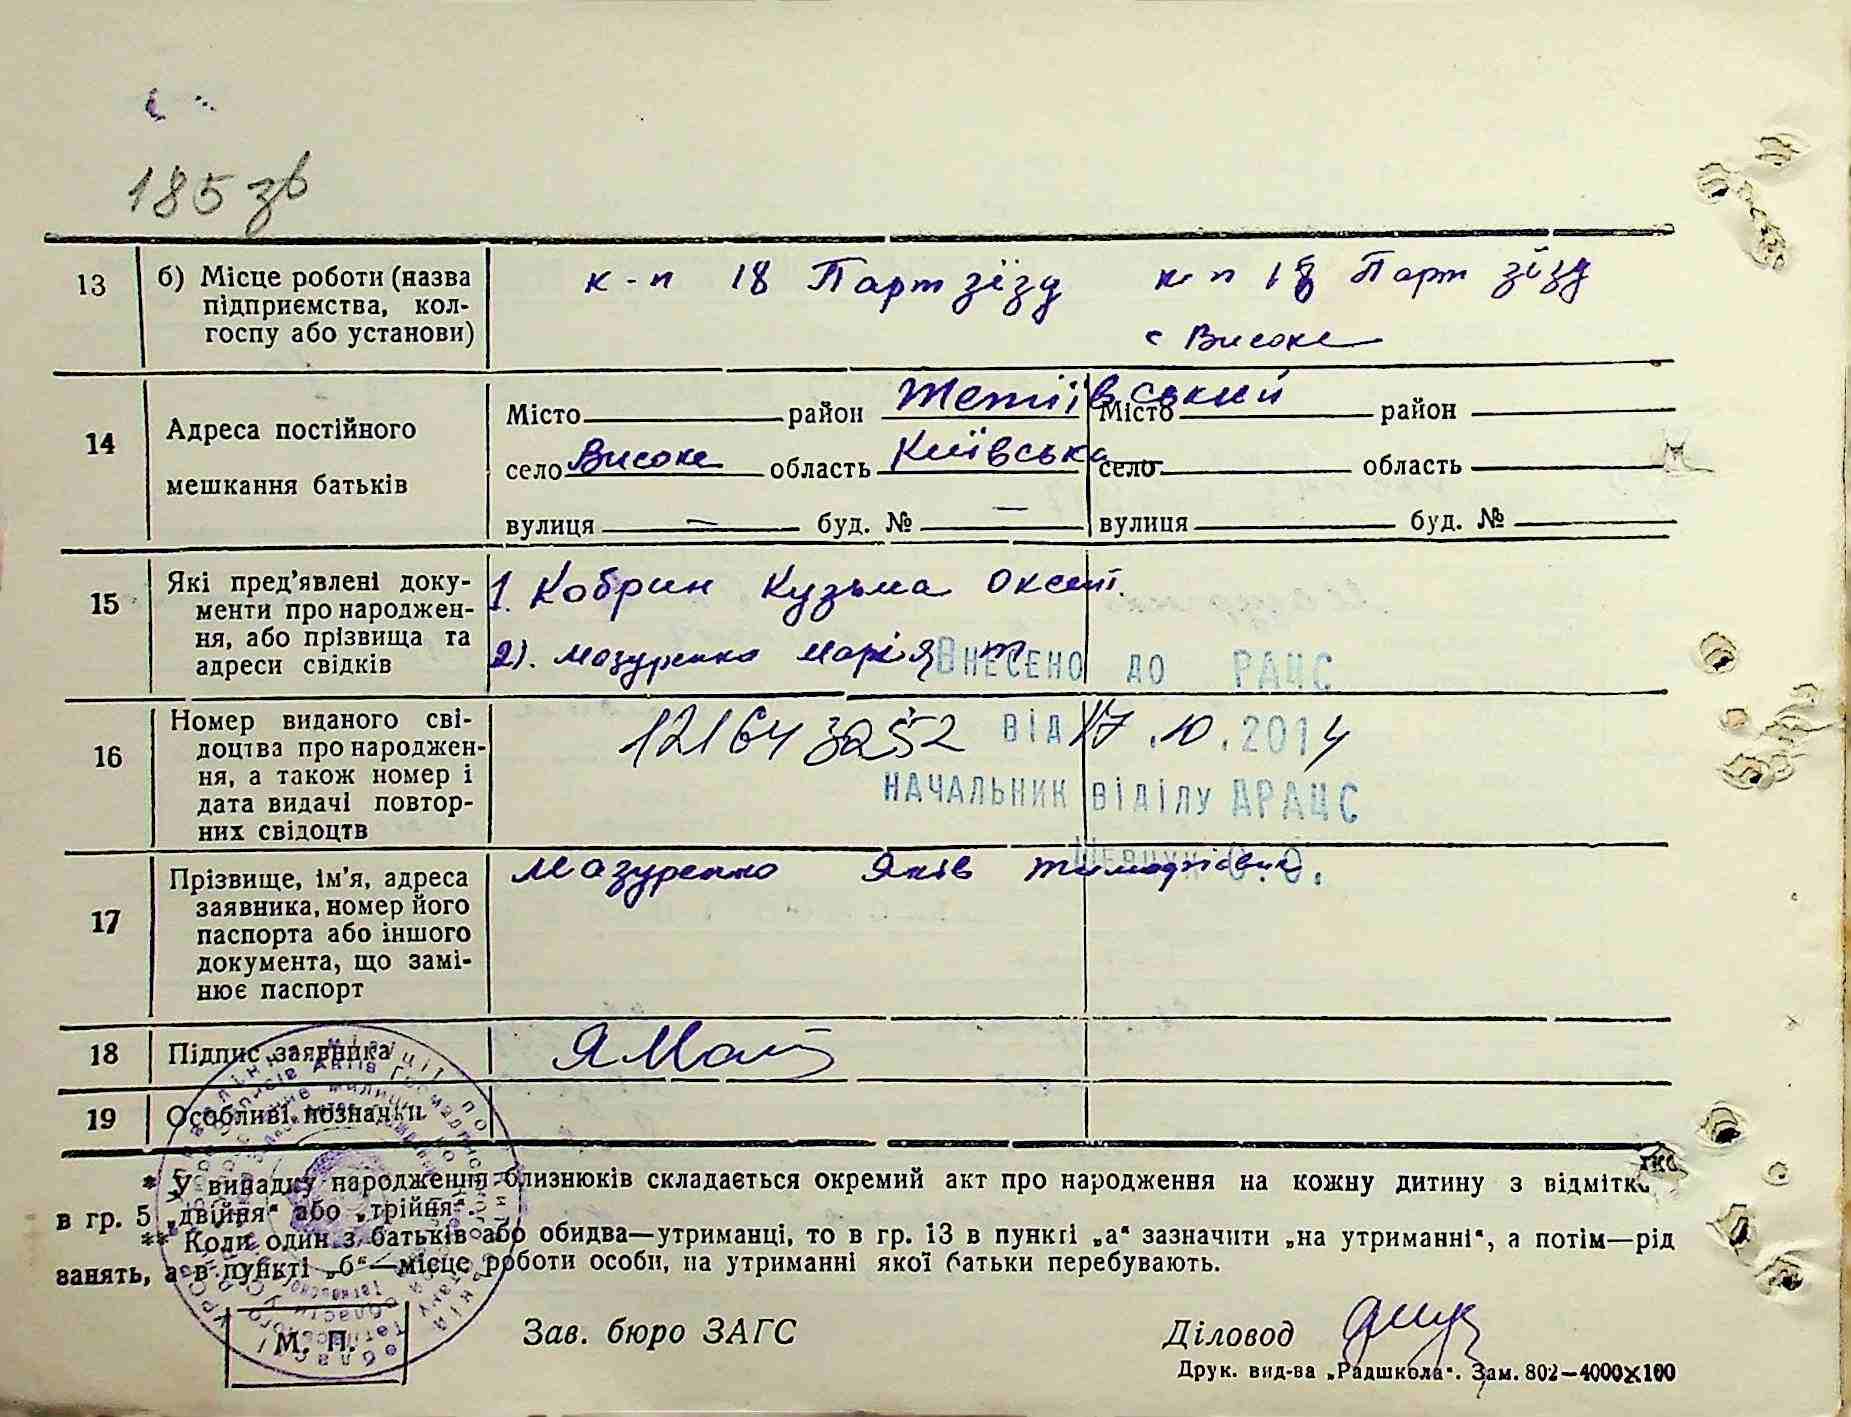 185 зв
13 б) Місце роботи (назва підприємства, колгоспу або установи)
к-п 18 Парт зїзд к-п 18 Парт зїзд
с Високе
14 Адреса постійного мешкання батьків
Місто район Тетіївський Місто район
село Високе область Київська село область
вулиця — буд. № — вулиця буд. №
15 Які пред'явлені доку-
менти про народжен-
ня, або прізвища та
адреси свідків
1. Кобрин Кузьма Оксент.
2). Мазуренко Марія Т
Внесено до РАЦС
16 Номер виданого сві-
доцтва про народжен-
ня, а також номер і
дата видачі повтор-
них свідоцтв
від 17.10.2014
НАЧАЛЬНИК ВІДІЛУ ДРАЦС
Шевчук О.О.
17 Прізвище, ім'я, адреса
заявника, номер його
паспорта або іншого
документа, що замі-
нює паспорт
Мазуренко Яків Тимофієвич
18 Підпис заявника
ЯМаз
19 Особливі позначки
* У випадку народження близнюків складається окремий акт про народження на кожну дитину з відмітко
в гр. 5 „двійня“ або „трійня“.
** Коли один з батьків або обидва—утриманці, то в гр. 13 в пункті „а“ зазначити „на утриманні“, а потім—рід
занять, а в пункті „б“—місце роботи особи, на утриманні якої батьки перебувають.
М. П.
Зав. бюро ЗАГС
Діловод
Друк. вид-ва „Радшкола“. Зам. 802—4000×100